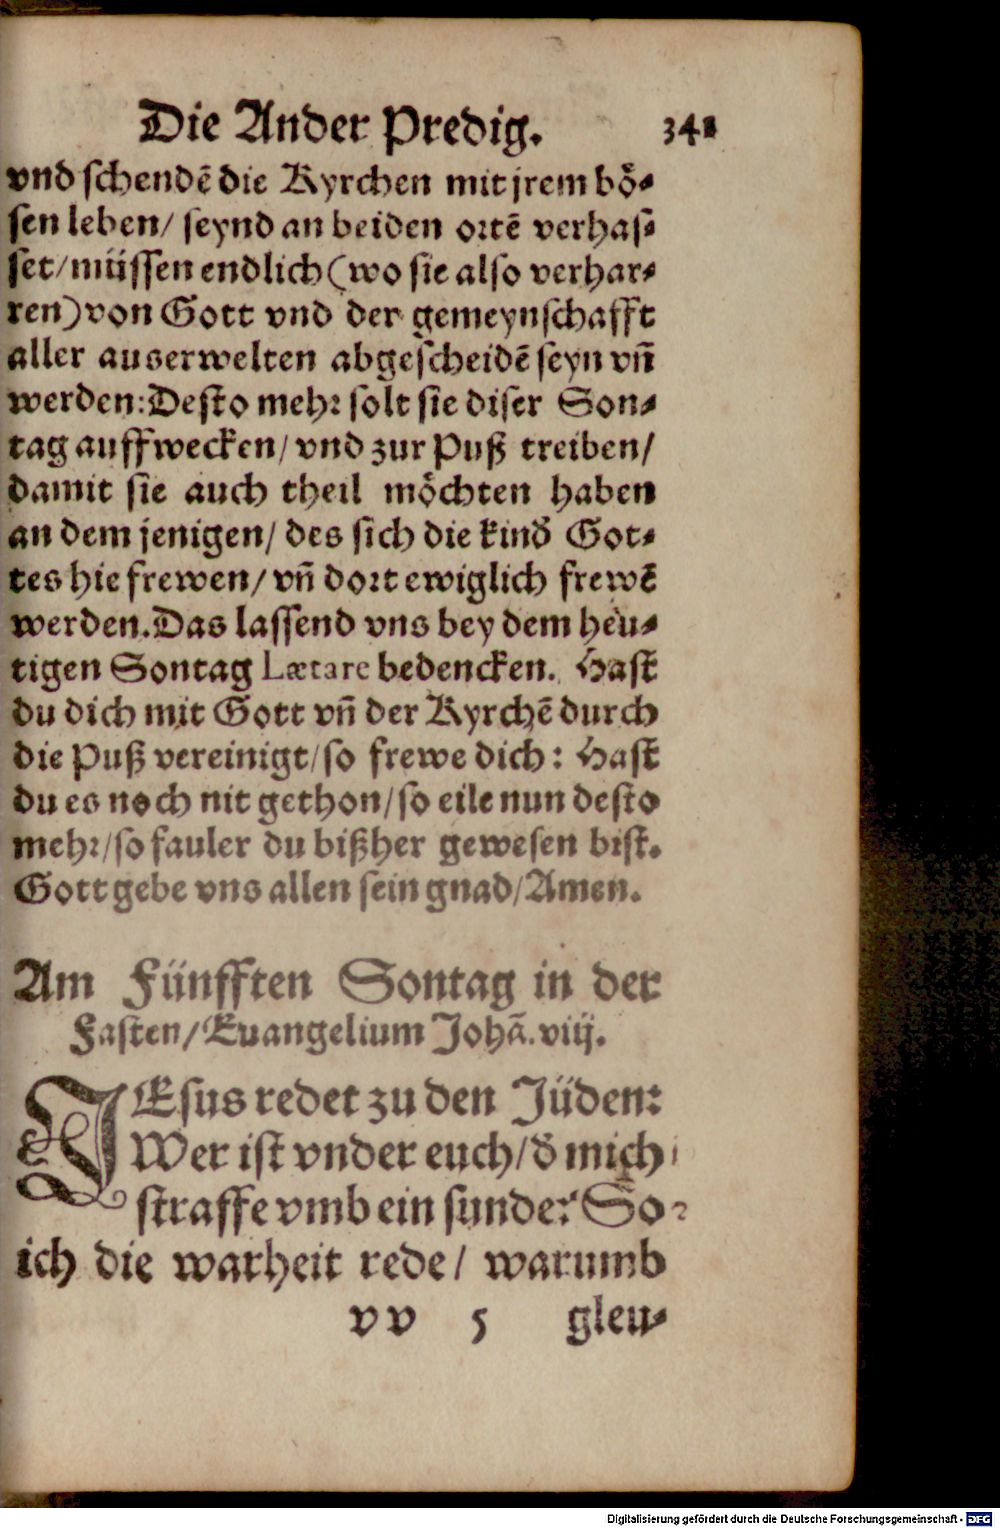 Die Ander Predig. 341
vnd schendē die Kyrchen mit jrem bö-
sen leben/ seynd an beiden ortē verhas-
set/müssen endlich (wo sie also verhar-
ren) von Gott vnd der gemeynschafft
aller auserwelten abgescheidē seyn vn̄
werden: Desto mehr solt sie diser Son-
tag auffwecken/ vnd zur Puß treiben/
damit sie auch theil möchten haben
an dem jenigen/ des sich die kind Got-
tes hie frewen/ vn̄ dort ewiglich frewē
werden. Das lassend vns bey dem heu-
tigen Sontag Lætare bedencken. Hast
du dich mit Gott vn̄ der Kyrchē durch
die Puß vereinigt/so frewe dich: Hast
du es noch nit gethon/so eile nun desto
mehr/so fauler du bißher gewesen bist.
Gott gebe vns allen sein gnad/Amen.
Am Fünfften Sontag in der
Fasten/Euangelium Johā. viij.
JEsus redet zu den Jüden:
Wer ist vnder euch/ď mich
straffe vmb ein sunde? So
ich die warheit rede/ warumb
vv 5 gleu-
Digitalisierung gefördert durch die Deutsche Forschungsgemeinschaft - DFG